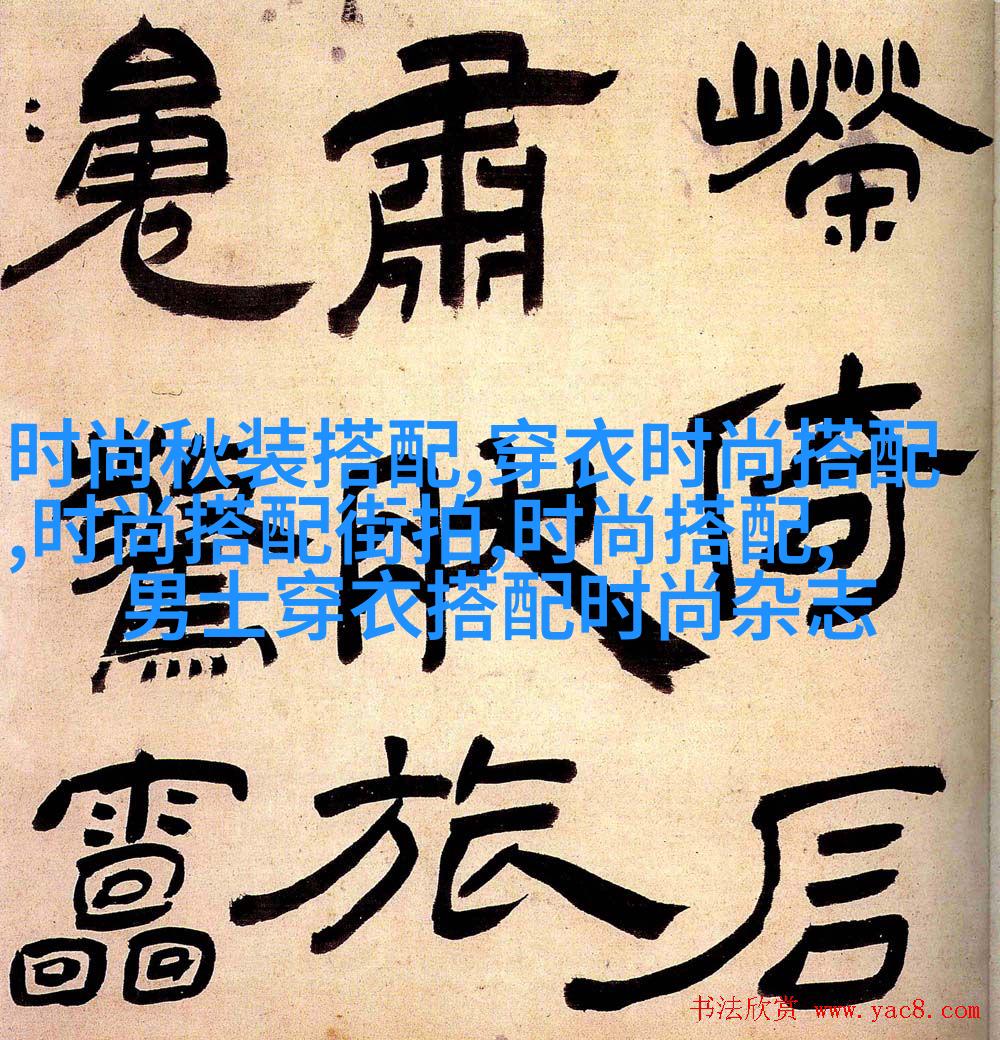 嶸倚
肅眼旅
驚靁
时尚秋装搭配,穿衣时尚搭配
,时尚搭配街拍,时尚搭配,
男士穿衣搭配时尚杂志
书法欣赏 www.yac8.com